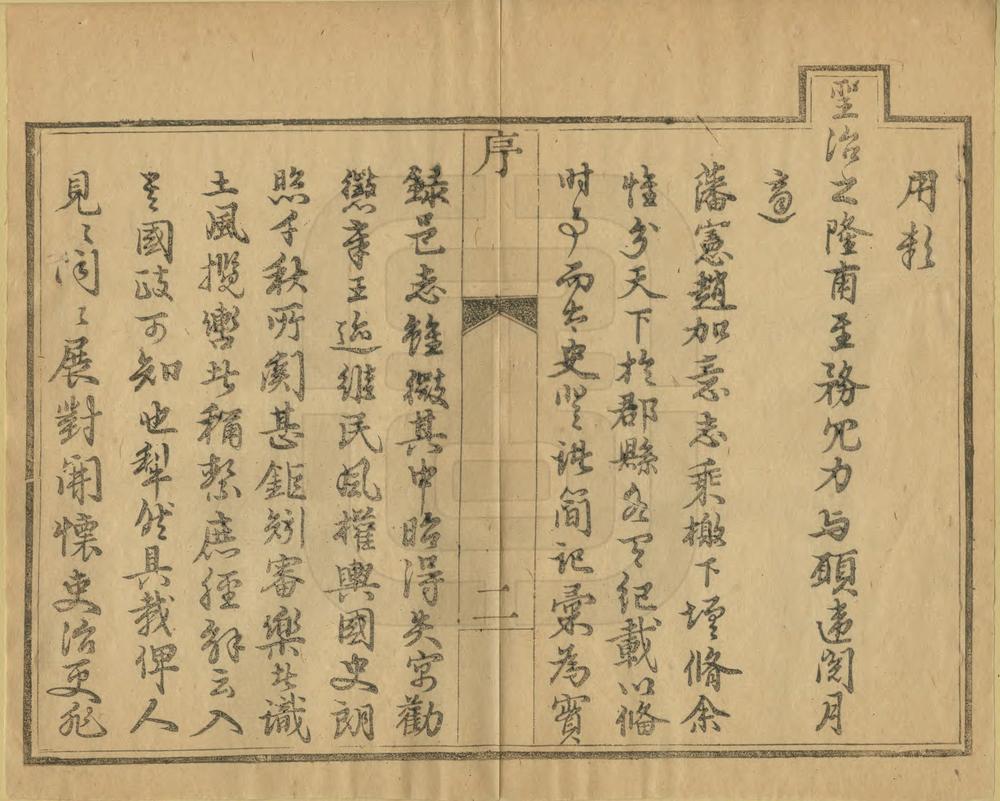 用彰
聖治之隆甫至務冗力与願違閱月
適
藩憲趙加意志乘檄下增脩余
惟分天下於郡縣各有紀載以俻
时事而古史睲誌簡記彙為實
序
二
録邑志雖微其中昭得失寓勸
懲章王迹維民風權輿國史朗
照千秋所関甚鉅矧審樂者識
土風攬轡者稱繁庶經解云入
其國政可知也犁然具載俾人
見見聞聞展對開懷吏治更癒